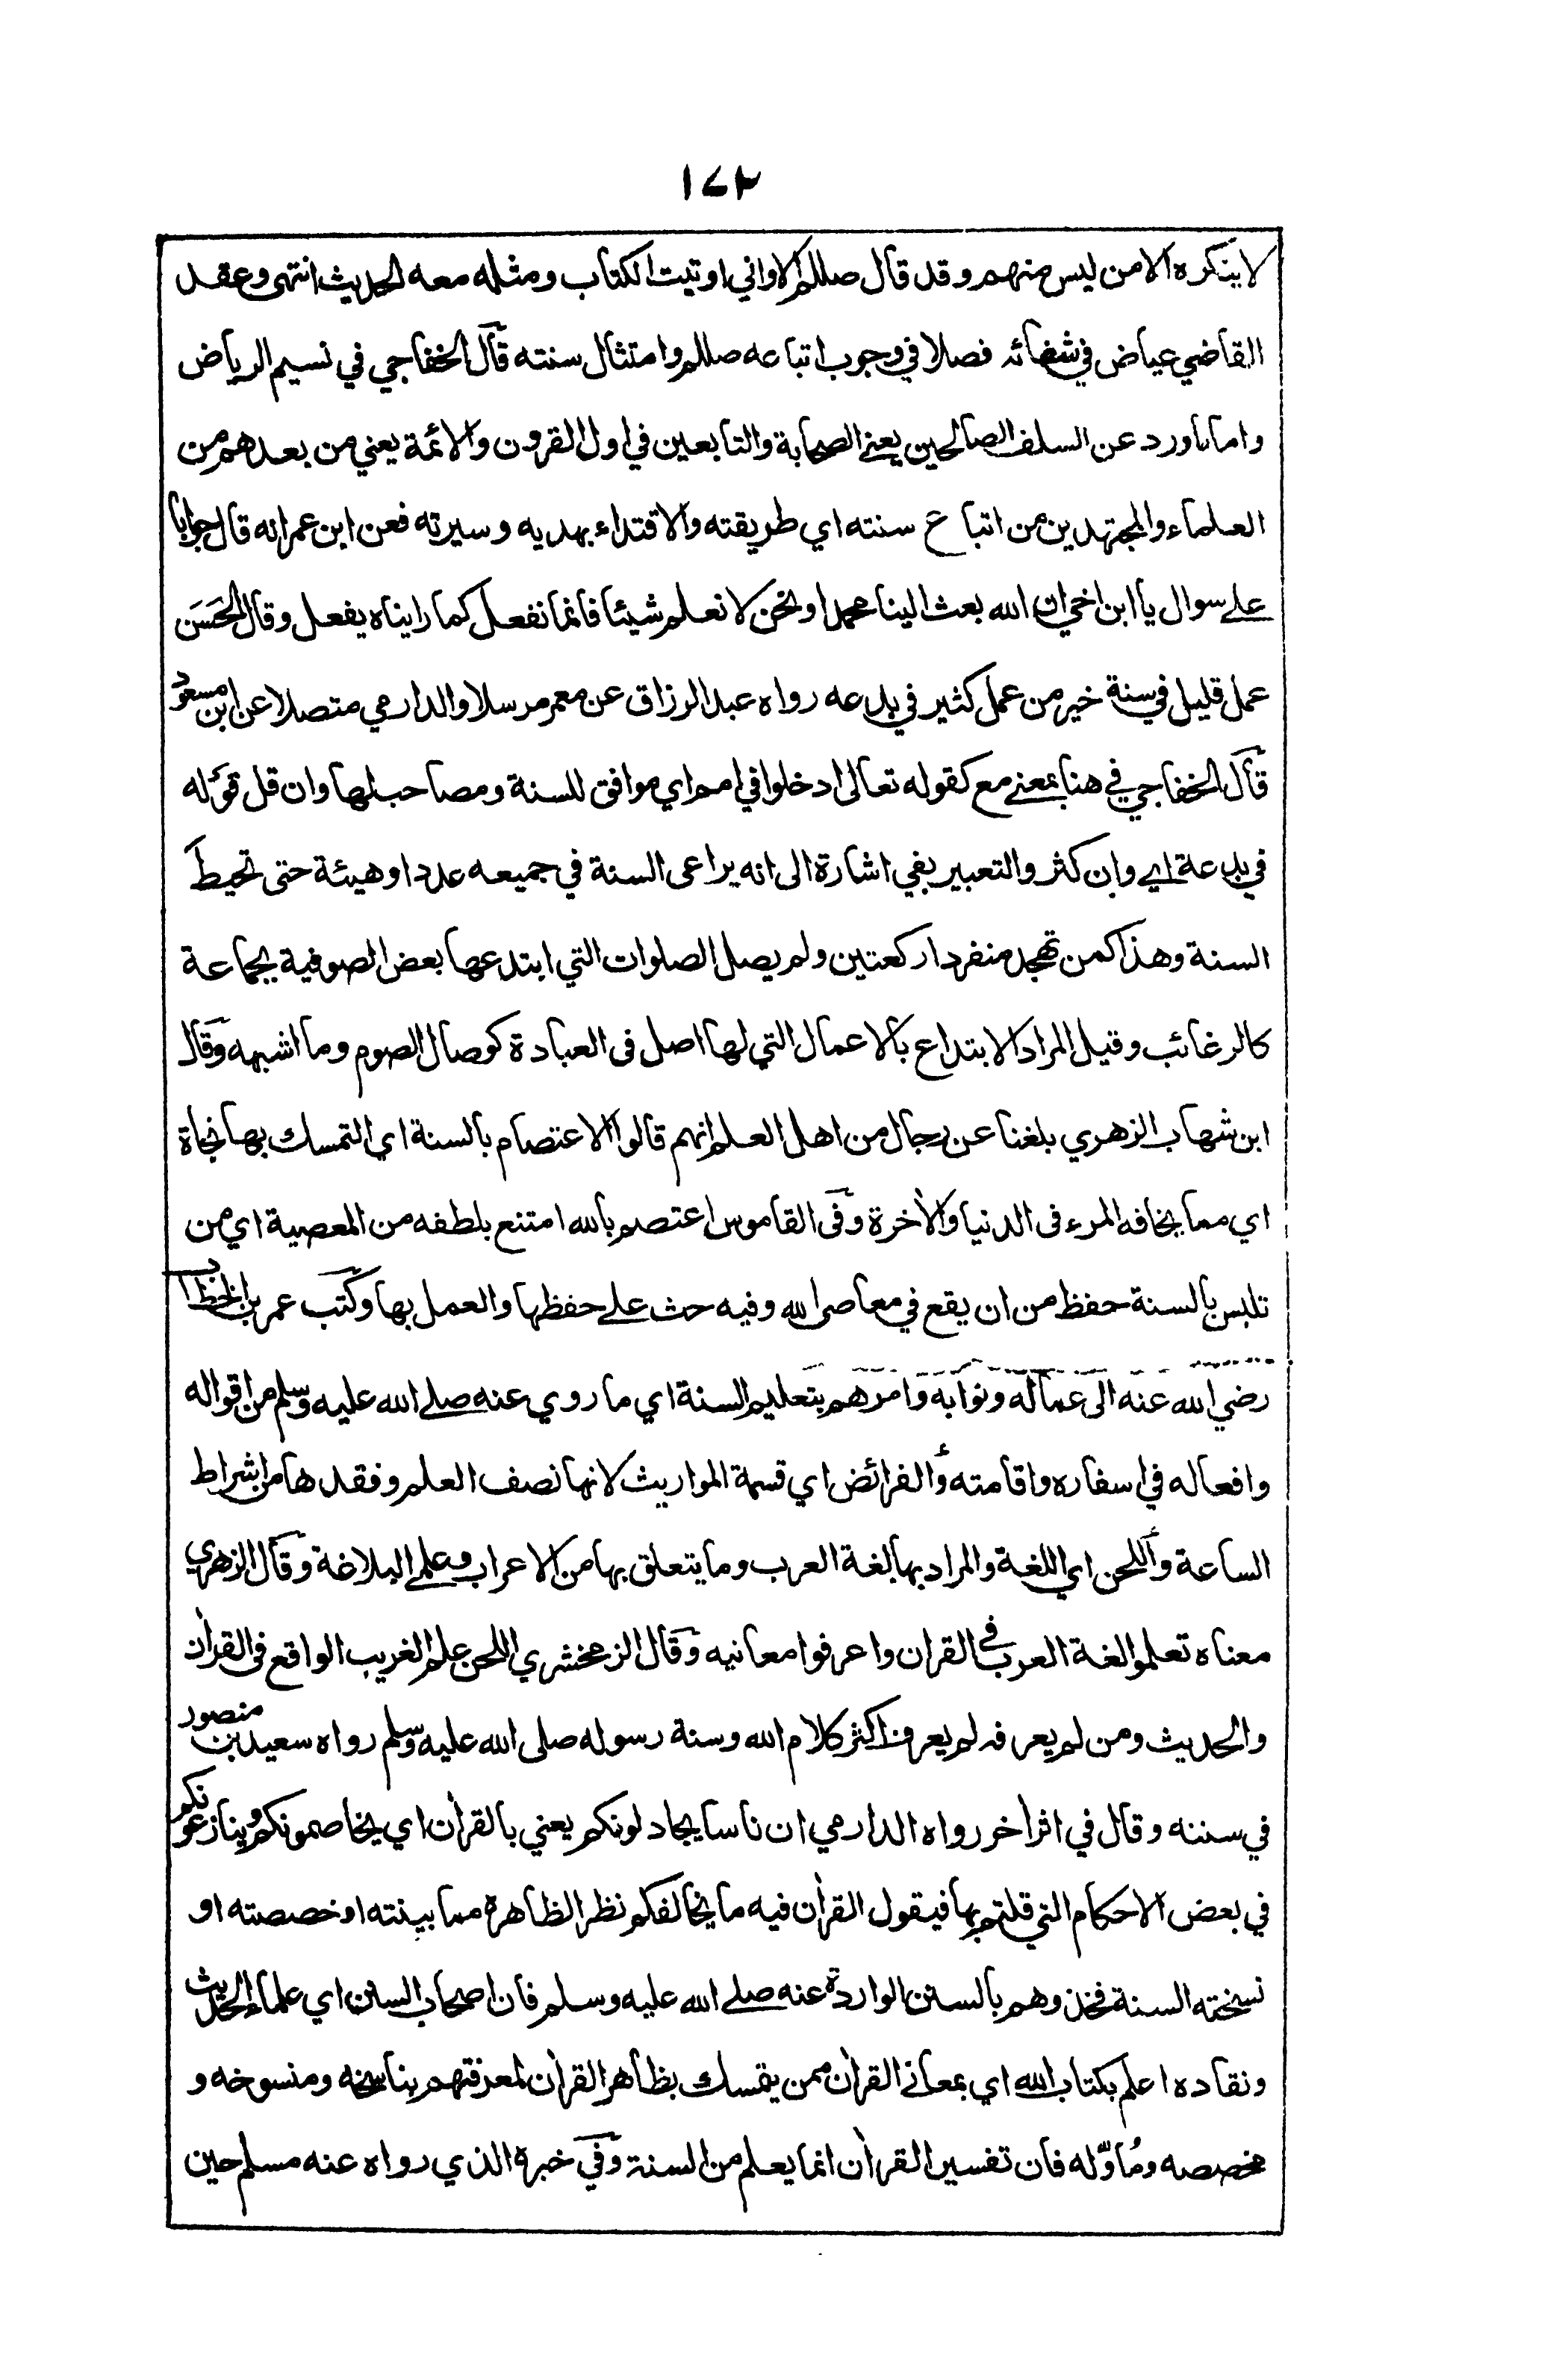 ١٧٢
لا ينكره الا من ليس منهم وقد قال صللم الا واني اوتيت الكتاب ومثله معه الحديث انتهى وعقد
القاضي عياض في شفائه فصلا في وجوب اتباعه صللم وامتثال سنته قال الخفاجي في نسيم الرياض
واما ما ورد عن السلف الصالحين يعني الصحابة والتابعين في اول القرون والائمة يعني من بعدهم من
العلماء والمجتهدين من اتباع سنته اي طريقته والاقتداء بهديه وسيرته فعن ابن عمر انه قال جوابا
على سوال يا ابن اخي ان الله بعث الينا محمدا ونحن لا نعلم شيئا فانما نفعل كما رايناه يفعل وقال الحسن
عمل قليل في سنة خير من عمل كثير في بدعه رواه عبد الرزاق عن معمر مرسلا والدارمي متصلا عن ابن مسعود
قال الخفاجي في هنا بمعنى مع كقوله تعالى ادخلوا في امم اي موافق للسنة ومصاحب لها وان قل قوله
في بدعة اي وان كثر والتعبير بفي اشارة الى انه يراعى السنة في جميعه عددا وهيئة حتى تحيط
السنة وهذا كمن تهجد منفردا ركعتين ولم يصل الصلوات التي ابتدعها بعض الصوفية بجماعة
كالرغائب وقيل المراد الابتداع بالاعمال التي لها اصل فى العبادة كوصال الصوم وما اشبهه وقال
ابن شهاب الزهري بلغنا عن رجال من اهل العلم انهم قالوا الاعتصام بالسنة اي التمسك بها نجاة
اي مما يخافه المرء فى الدنيا والاخرة وفى القاموس اعتصم بالله امتنع بلطفه من المعصية اي من
تلبس بالسنة حفظ من ان يقع في معاصى الله وفيه حث على حفظها والعمل بها وكتب عمر بن الخطاب
رضي الله عنه الى عماله ونوابه وامرهم بتعليم السنة اي ما روي عنه صلى الله عليه وسلم من اقواله
وافعاله في اسفاره واقامته والفرائض اي قسمة المواريث لانها نصف العلم وفقدها من اشراط
الساعة واللحن اي اللغة والمراد بها لغة العرب وما يتعلق بها من الاعراب وعلمي البلاغة وقال الزهري
معناه تعلموا لغة العرب في القران واعرفوا معانيه وقال الزمخشري اللحن علم الغريب الواقع فى القران
والحديث ومن لم يعرفه لم يعرف اكثر كلام الله وسنة رسوله صلى الله عليه وسلم رواه سعيد بن منصور
في سننه وقال في اثر اخر رواه الدارمي ان ناسا يجادلونكم يعني بالقران اي يخاصمونكم وينازعونكم
في بعض الاحكام التي قلتم بها فيقول القران فيه ما يخالفكم نظر الظاهره مما بينته او خصصته او
نسخته السنة فخذوهم بالسنن الواردة عنه صلى الله عليه وسلم فان اصحاب السنن اي علماء الحديث
ونقاده اعلم بكتاب الله اي بمعاني القران ممن يتمسك بظاهر القران لمعرفتهم بناسخه ومنسوخه و
مخصصه ومُاوّله فان تفسير القران انما يعلم من السنة وفي خبره الذي رواه عنه مسلم حين